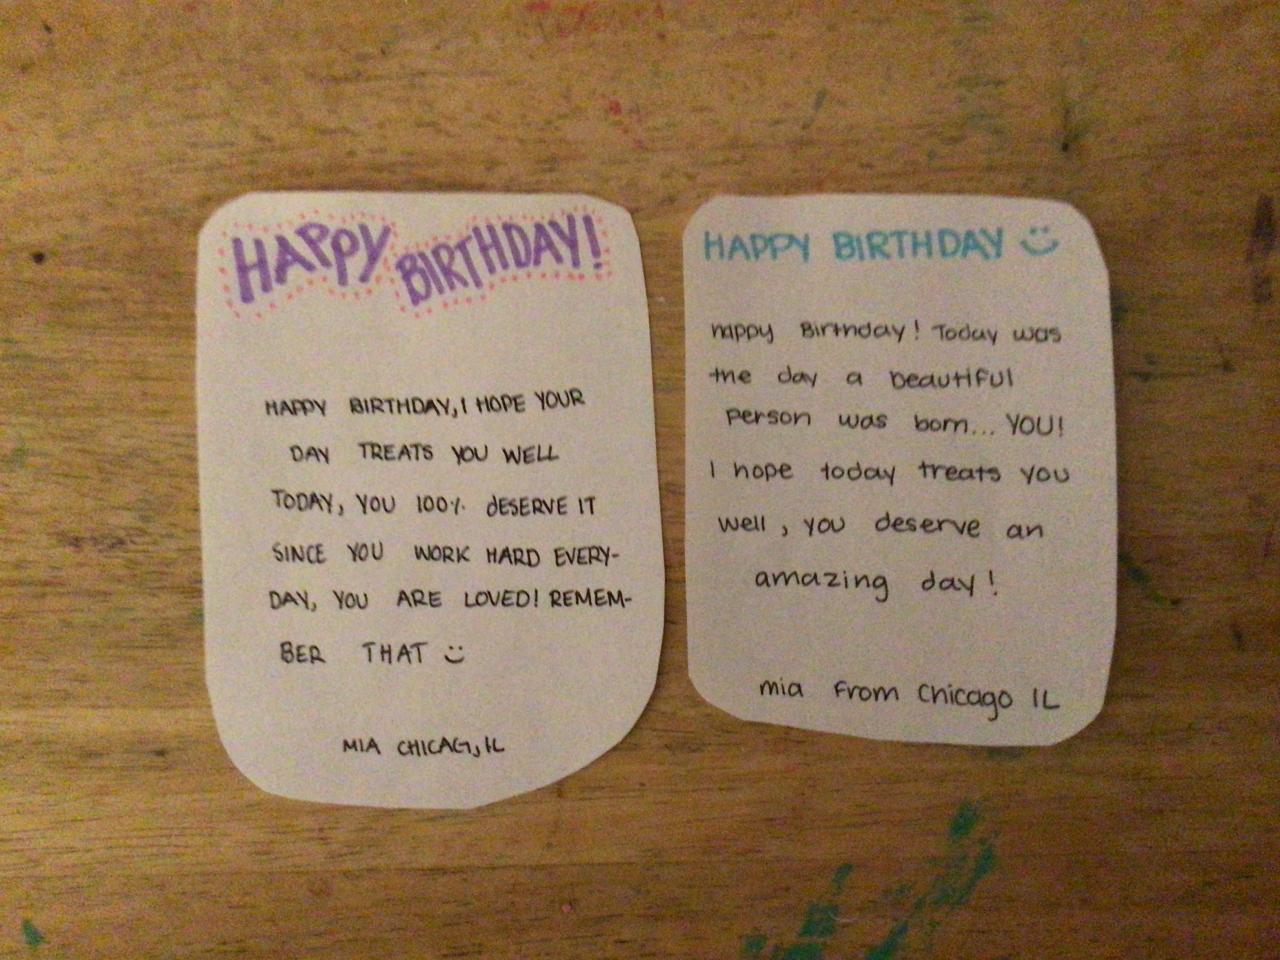 HAPPY BIRTHDAY!
HAPPY BIRTHDAY, I HOPE YOUR
DAY TREATS YOU WELL
TODAY, YOU 100% DESERVE IT
SINCE YOU WORK HARD EVERY-
DAY, YOU ARE LOVED! REMEM-
BER THAT :)
MIA CHICAG, IL
HAPPY BIRTHDAY :)
Happy Birthday! Today was
the day a beautiful
person was born... YOU!
I hope today treats you
well, you deserve an
amazing day!
mia from Chicago IL